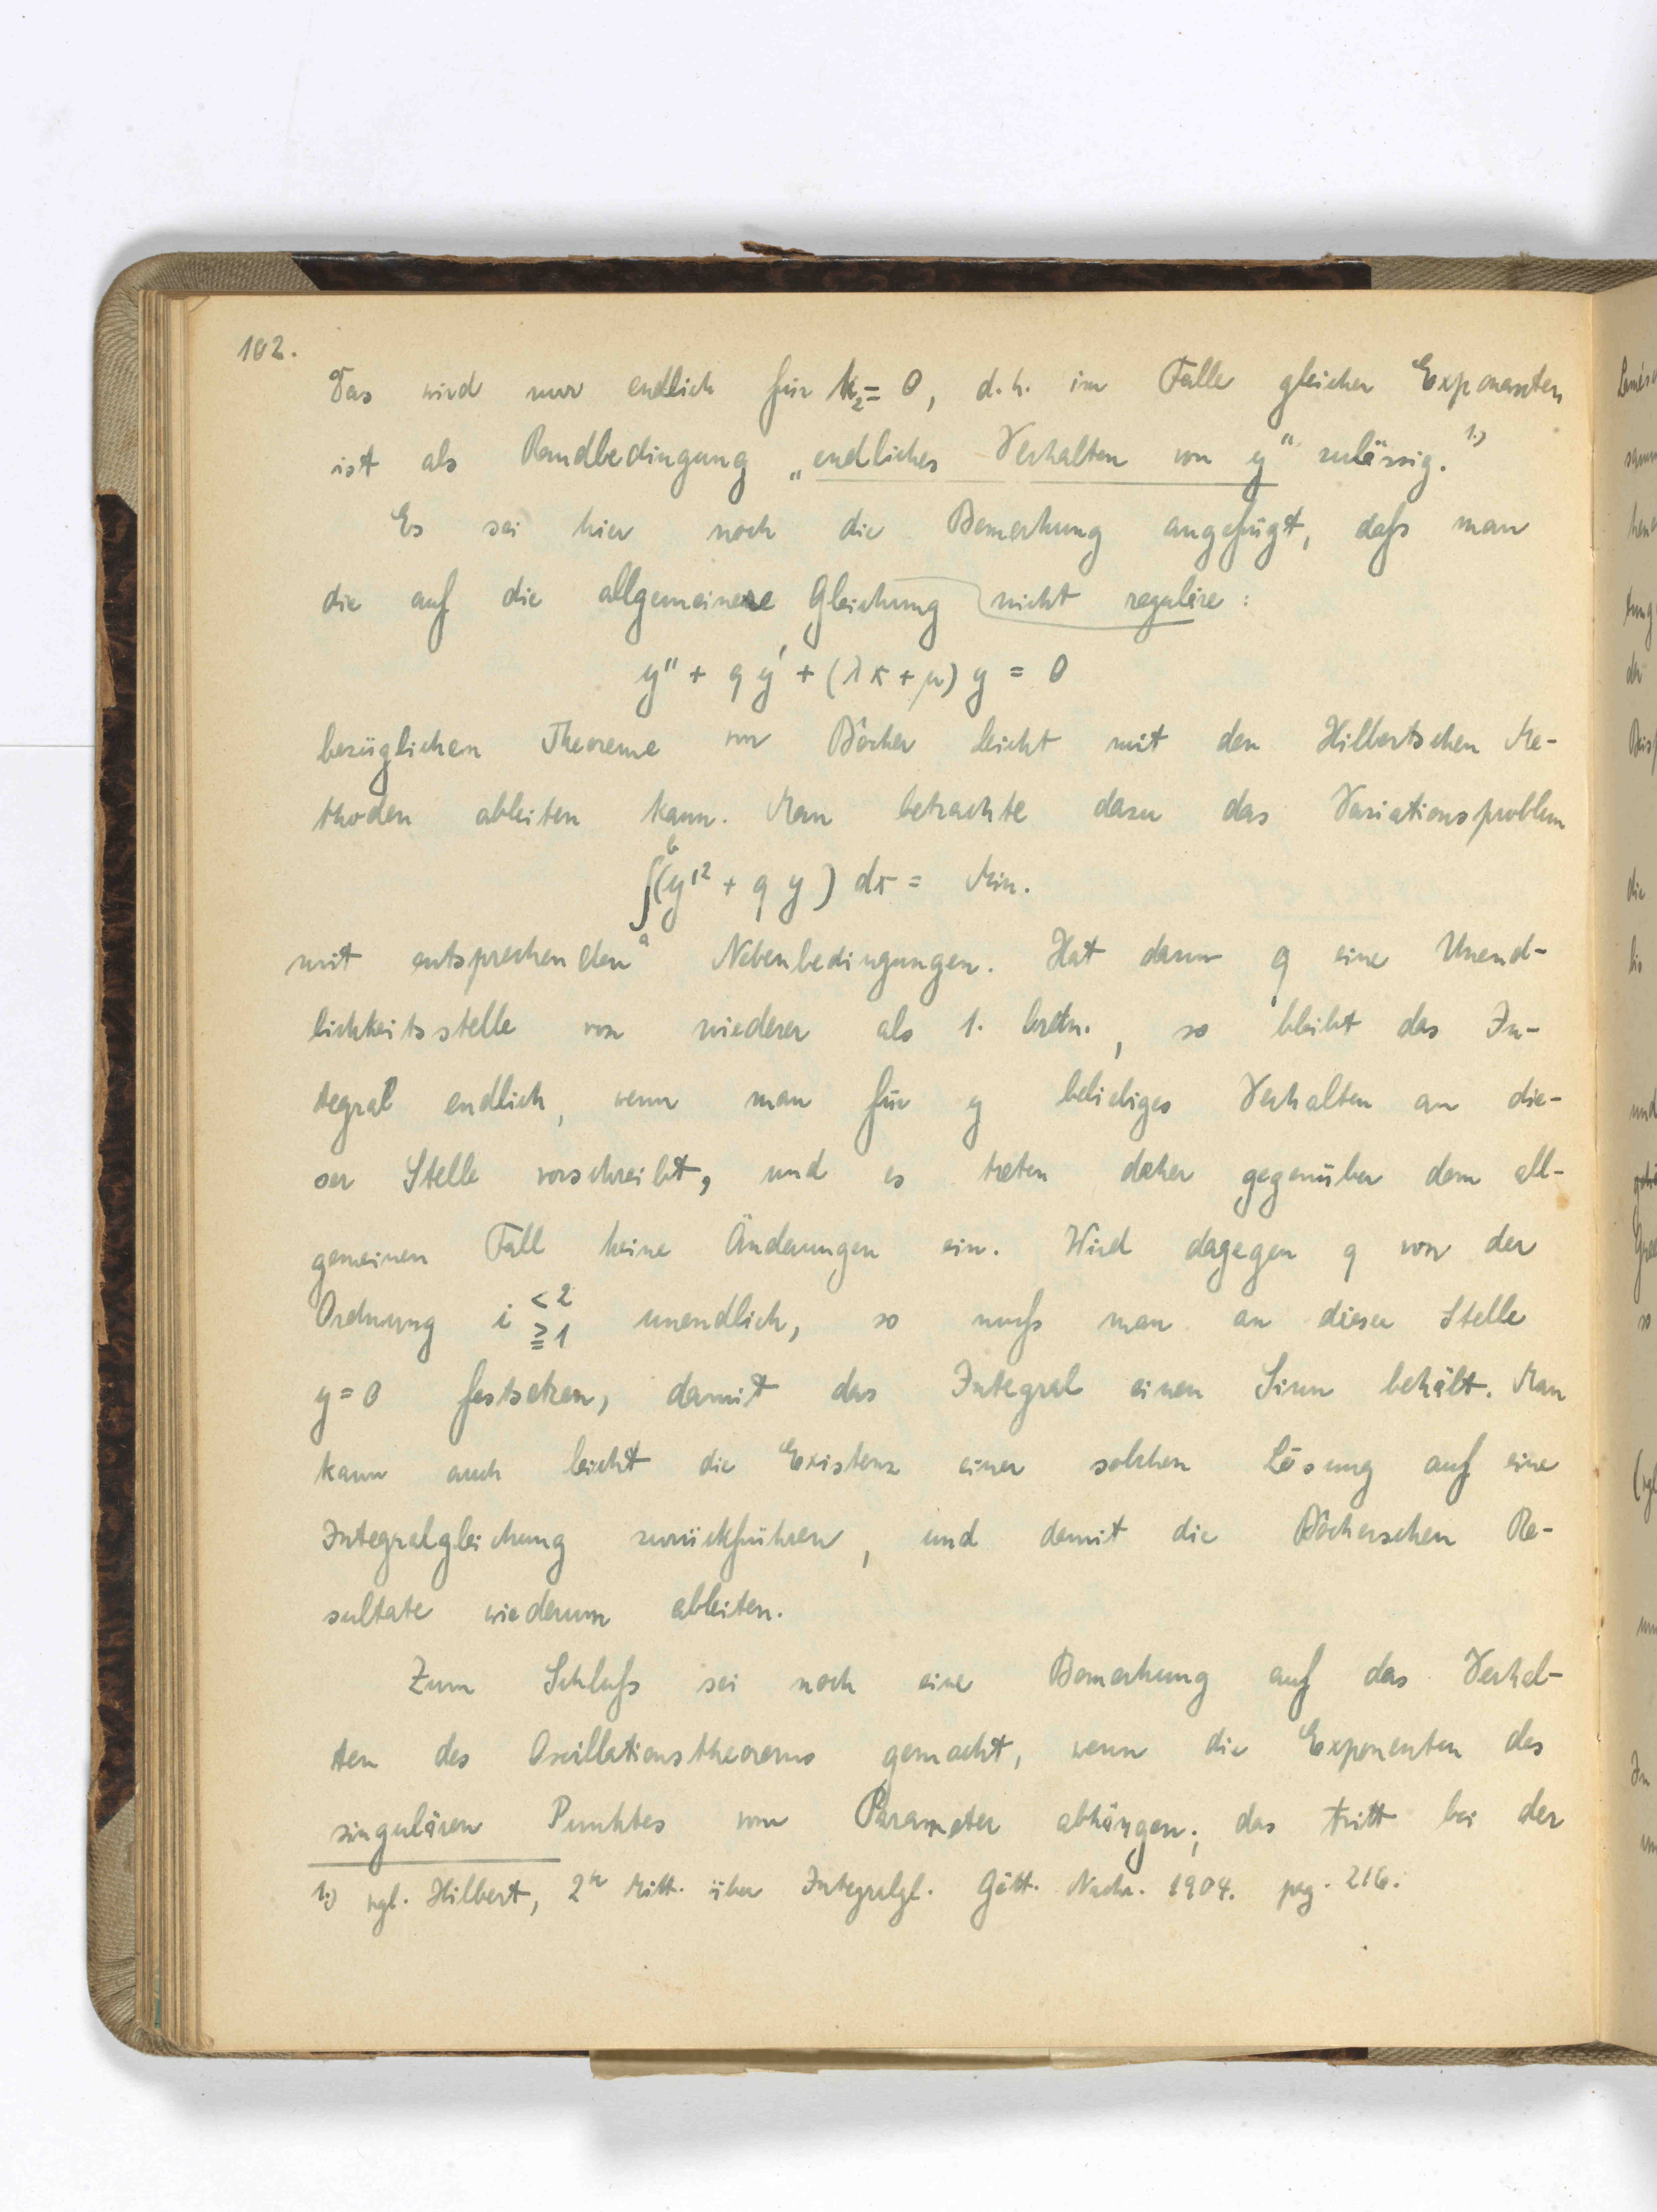 102.
Das wird nur endlich für k₂ = 0, d.h. im Falle gleicher Exponenten
ist als Randbedingung „endliches Verhalten von y" zulässig. 1.)
Es sei hier noch die Bemerkung angefügt, daſs man
die auf die allgemeinere Gleichung nicht reguläre:
y'' + q y' + (λx + μ) y = 0
bezüglichen Theoreme von Bôcher leicht mit den Hilbertschen Me-
thoden ableiten kann. Man betrachte dazu das Variationsproblem
∫ₐᵇ (y'² + q y) dx = Min.
mit entsprechenden Nebenbedingungen. Hat dann q eine Unend-
lichkeitsstelle von niederer als 1. Ordn., so bleibt das In-
tegral endlich, wenn man für y beliebiges Verhalten an die-
ser Stelle vorschreibt, und es treten daher gegenüber dem all-
gemeinen Fall keine Änderungen ein. Wird dagegen q von der
Ordnung i < 2 ≧ 1 unendlich, so muſs man an dieser Stelle
y = 0 festsetzen, damit das Integral einen Sinn behält. Man
kann auch leicht die Existenz einer solchen Lösung auf eine
Integralgleichung zurückführen, und damit die Bôcherschen Re-
sultate wiederum ableiten.
Zum Schluſs sei noch eine Bemerkung auf das Verhal-
ten des Oscillationstheorems gemacht, wenn die Exponenten des
singulären Punktes vom Parameter abhängen; das tritt bei der
1.) vgl. Hilbert, 2te Mitt. über Integralgl. Gött. Nachr. 1904. pag. 216.